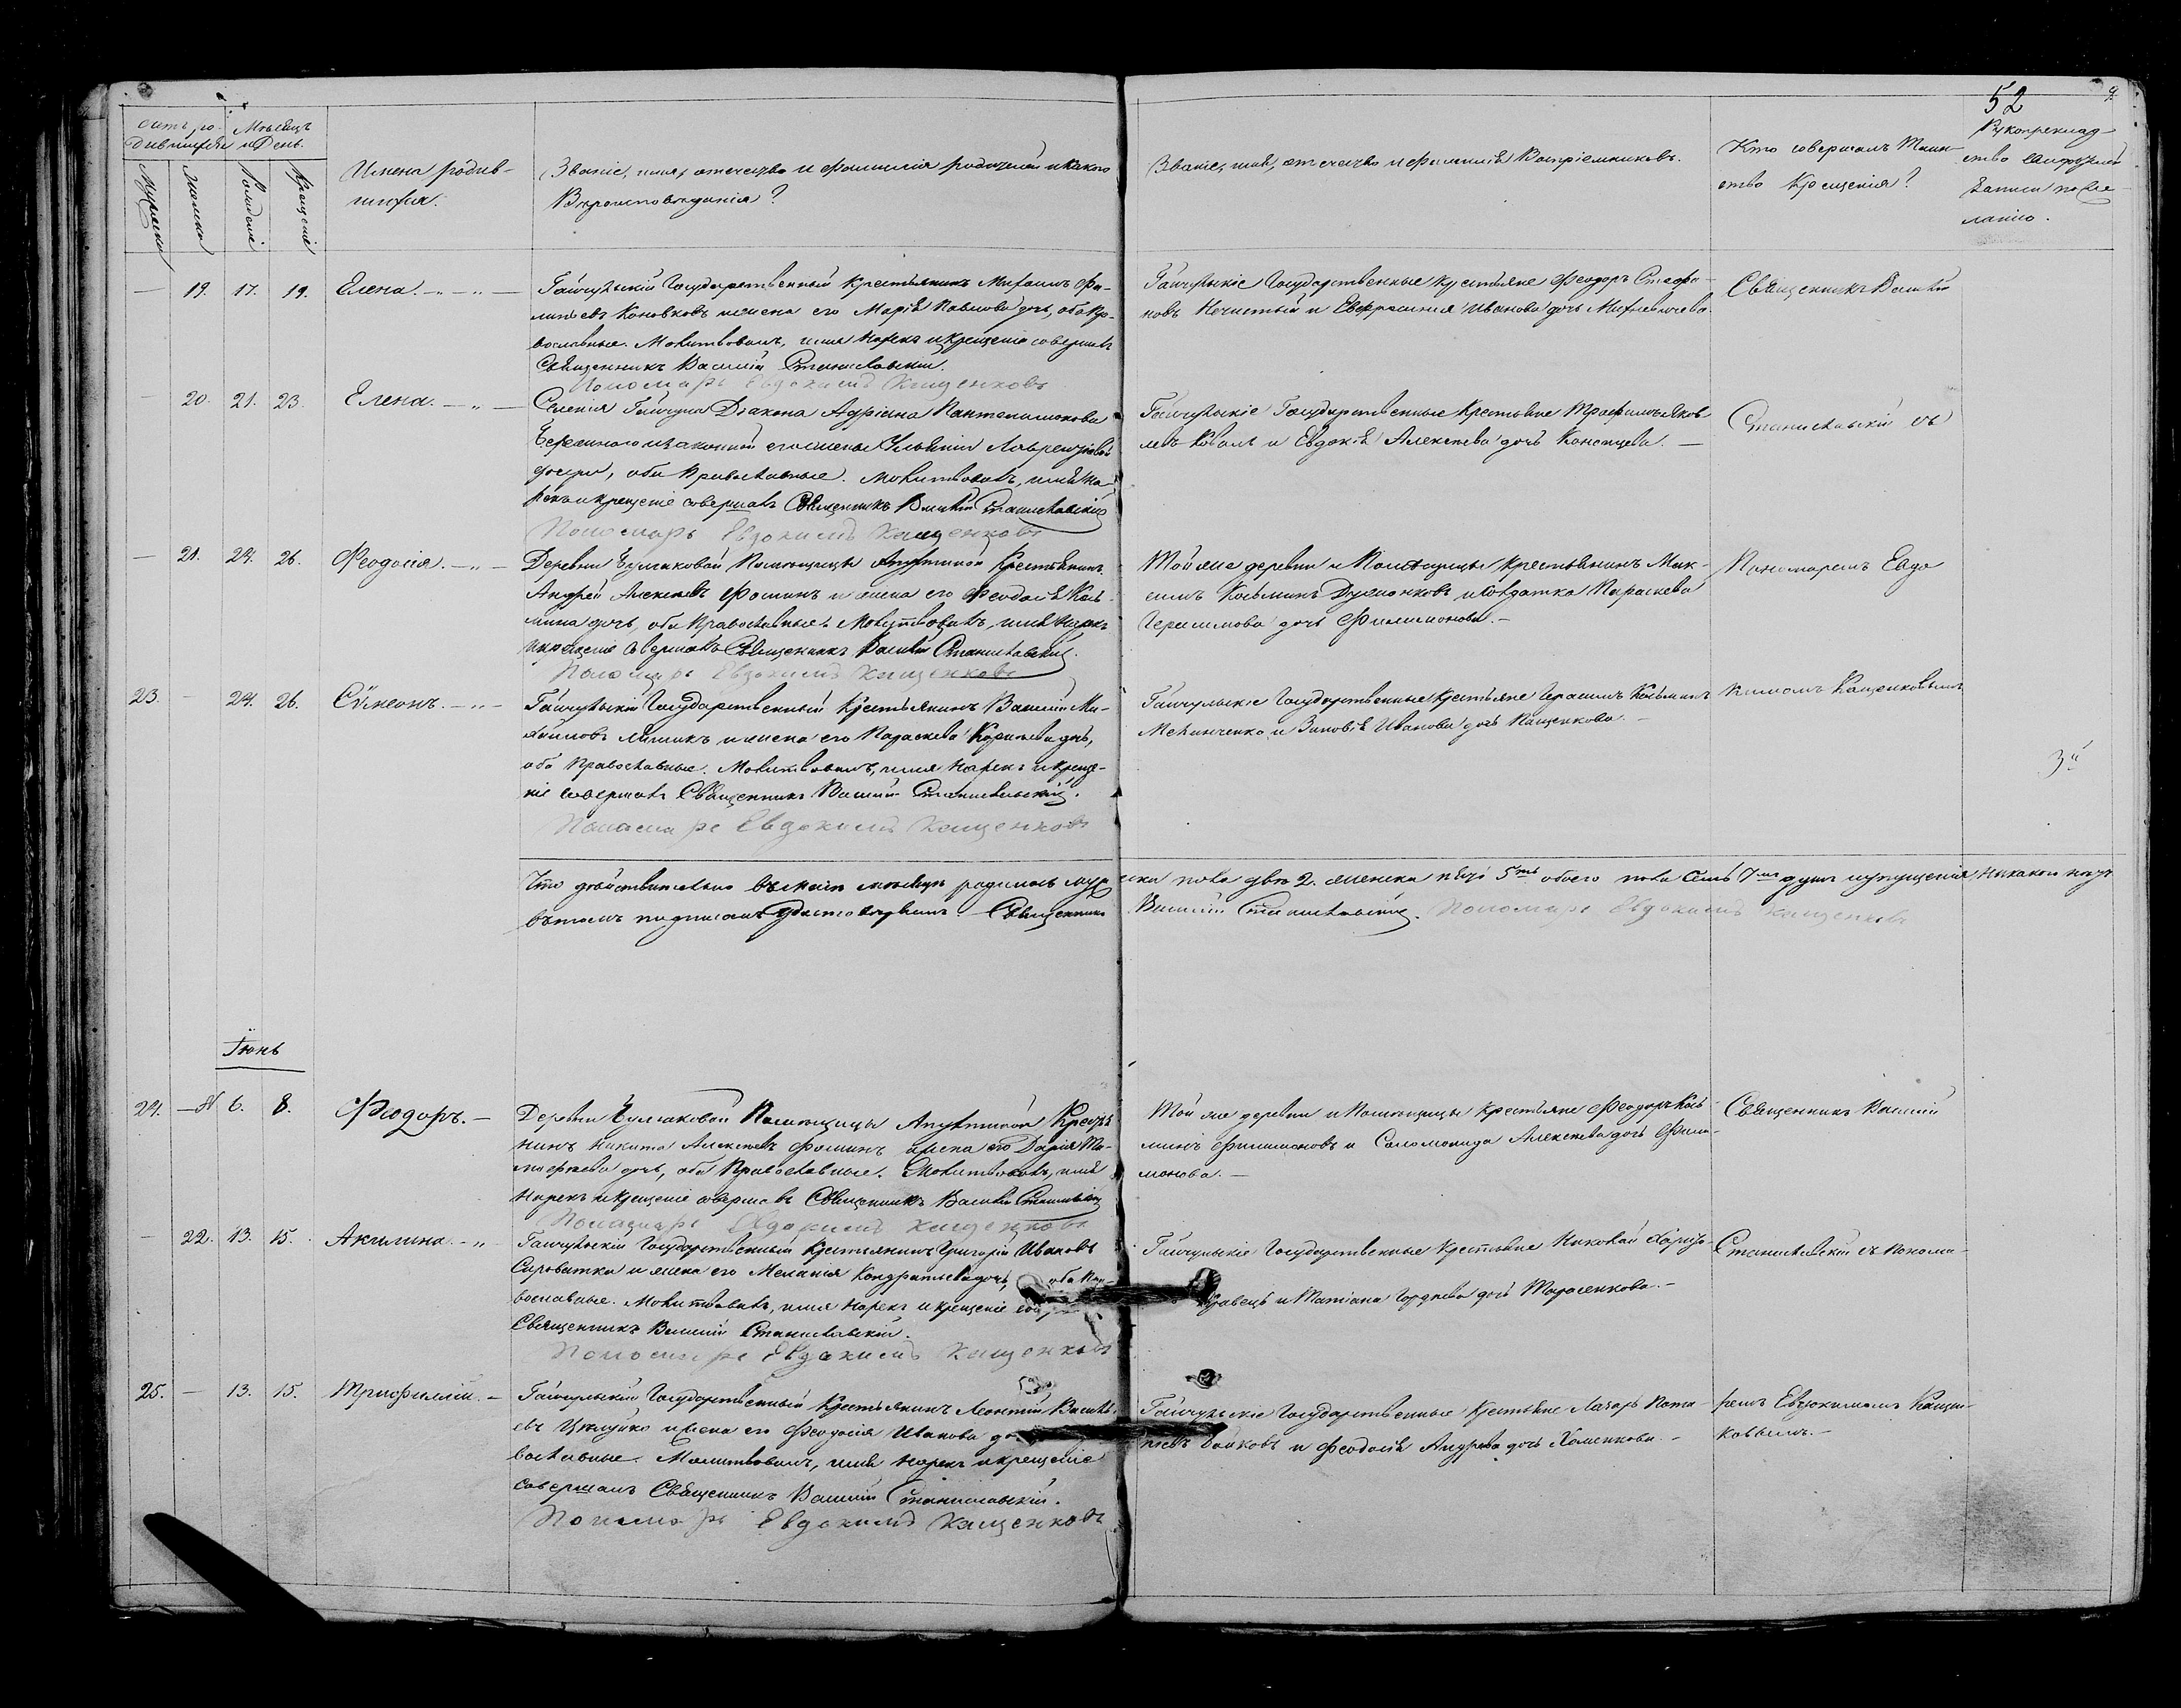 52
Счетъ ро-
дившихся
Мѣсяцъ
и День.
Мужеска
Женска
Рожденія
Крещенія
Имена родив-
шихся.
Званіе, имя, отечество и фамилія родителей и какого
Вѣроисповѣданія?
Званіе, имя, отечество и фамилія Воспріемниковъ.
Кто совершалъ Таин-
ство Крещенія?
Рукоприклад-
ство
записи по же-
ланію.
— 19. 17. 19. Елена.
Гайчульскій Государственный крестьянинъ Михаилъ Фи-
липовъ Коновковъ и жена его Марія Павлова дочь, оба Пра-
вославные. Молитвовалъ, имя нарекъ и крещеніе совершалъ
Священникъ Василій Станиславскій.
Пономарь Евдокимъ Кащенковъ
Гайчульскіе Государственные крестьяне Феодоръ Стефа-
новъ Нечистый и Евфросинія Иванова дочь
Священникъ Василій
— 20. 21. 23. Елена.
Селенія Гайчула Діакона Адріана Пантелимонова
и законной его жены Лаврентіевой
дочери, оба Православные. Молитвовалъ, имя на-
рекъ и крещеніе совершалъ Священникъ Василій Станиславскій
Пономарь Евдокимъ Кащенковъ
Гайчульскіе Государственные крестьяне Трофимъ Яков-
левъ Коваль и Евдокія Алексѣева дочь
Станиславскій съ
— 21. 24. 26. Феодосія.
Деревни Помѣщицы крестьянинъ
Андрей Алексѣевъ Фоминъ и жена его Феодосія Кось-
мина дочь, оба Православные. Молитвовалъ, имя нарекъ
и крещеніе совершалъ Священникъ Василій Станиславскій.
Пономарь Евдокимъ Кащенковъ
Той же деревни и Помѣщицы крестьянинъ Мак-
симъ Косьминъ и солдатка Параскева
Герасимова дочь Филимонова.
Пономаремъ Евдо
23. — 24. 26. Сѵмеонъ.
Гайчульскій Государственный крестьянинъ Василій Ми-
хайловъ и жена его Параскева дочь,
оба Православные. Молитвовалъ, имя нарекъ и креще-
ніе совершалъ Священникъ Василій Станиславскій.
Пономарь Евдокимъ Кащенковъ
Гайчульскіе Государственные крестьяне Герасимъ Косьминъ
и Зиновія Иванова дочь Кащенкова.
кимомъ Кащенковымъ
Что дѣйствительно въ маѣ мѣсяцѣ родилось муже
ска пола двѣ 2. женска пять 5ть обоего пола семь 7мь душъ и упущенія никакого нѣтъ
въ томъ подписомъ удостовѣряемъ. Священникъ
Василій Станиславскій. Пономарь Евдокимъ Кащенковъ
Іюнь
24. — 6. 8. Феодоръ.
Деревни Помѣщицы Крестья
нинъ Никита Алексѣевъ Фоминъ и жена его Дарія Ти-
мофеева дочь, оба Православные. Молитвовалъ, имя
нарекъ и крещеніе совершалъ Священникъ Василій Станиславскій
Пономарь Евдокимъ Кащенковъ
Той же деревни и Помѣщицы крестьяне Феодоръ Кось-
минъ Филимоновъ и Соломонида Алексѣева дочь Фили-
монова.
Священникъ Василій
— 22. 13. 15. Акилина.
Гайчульскій Государственный крестьянинъ Григорій Ивановъ
Сироватка и жена его Меланія Кондратьева дочь, оба Пра-
вославные. Молитвовалъ, имя нарекъ и крещеніе
Священникъ Василій Станиславскій.
Пономарь Евдокимъ Кащенковъ
Гайчульскіе Государственные крестьяне Николай
Кравецъ и Татіана Гордѣева дочь Тарасенкова.
Станиславскій съ понома-
25. — 13. 15. Трифиллій.
Гайчульскій Государственный крестьянинъ Леонтій Василь-
евъ и жена его Феодосія Иванова
вославные. Молитвовалъ, имя нарекъ и крещеніе
совершалъ Священникъ Василій Станиславскій.
Пономарь Евдокимъ Кащенковъ
Гайчульскіе Государственные крестьяне Лазарь
и Феодосія Андреева дочь Хоменкова.
ремъ Евдокимомъ Кащен-
ковымъ.